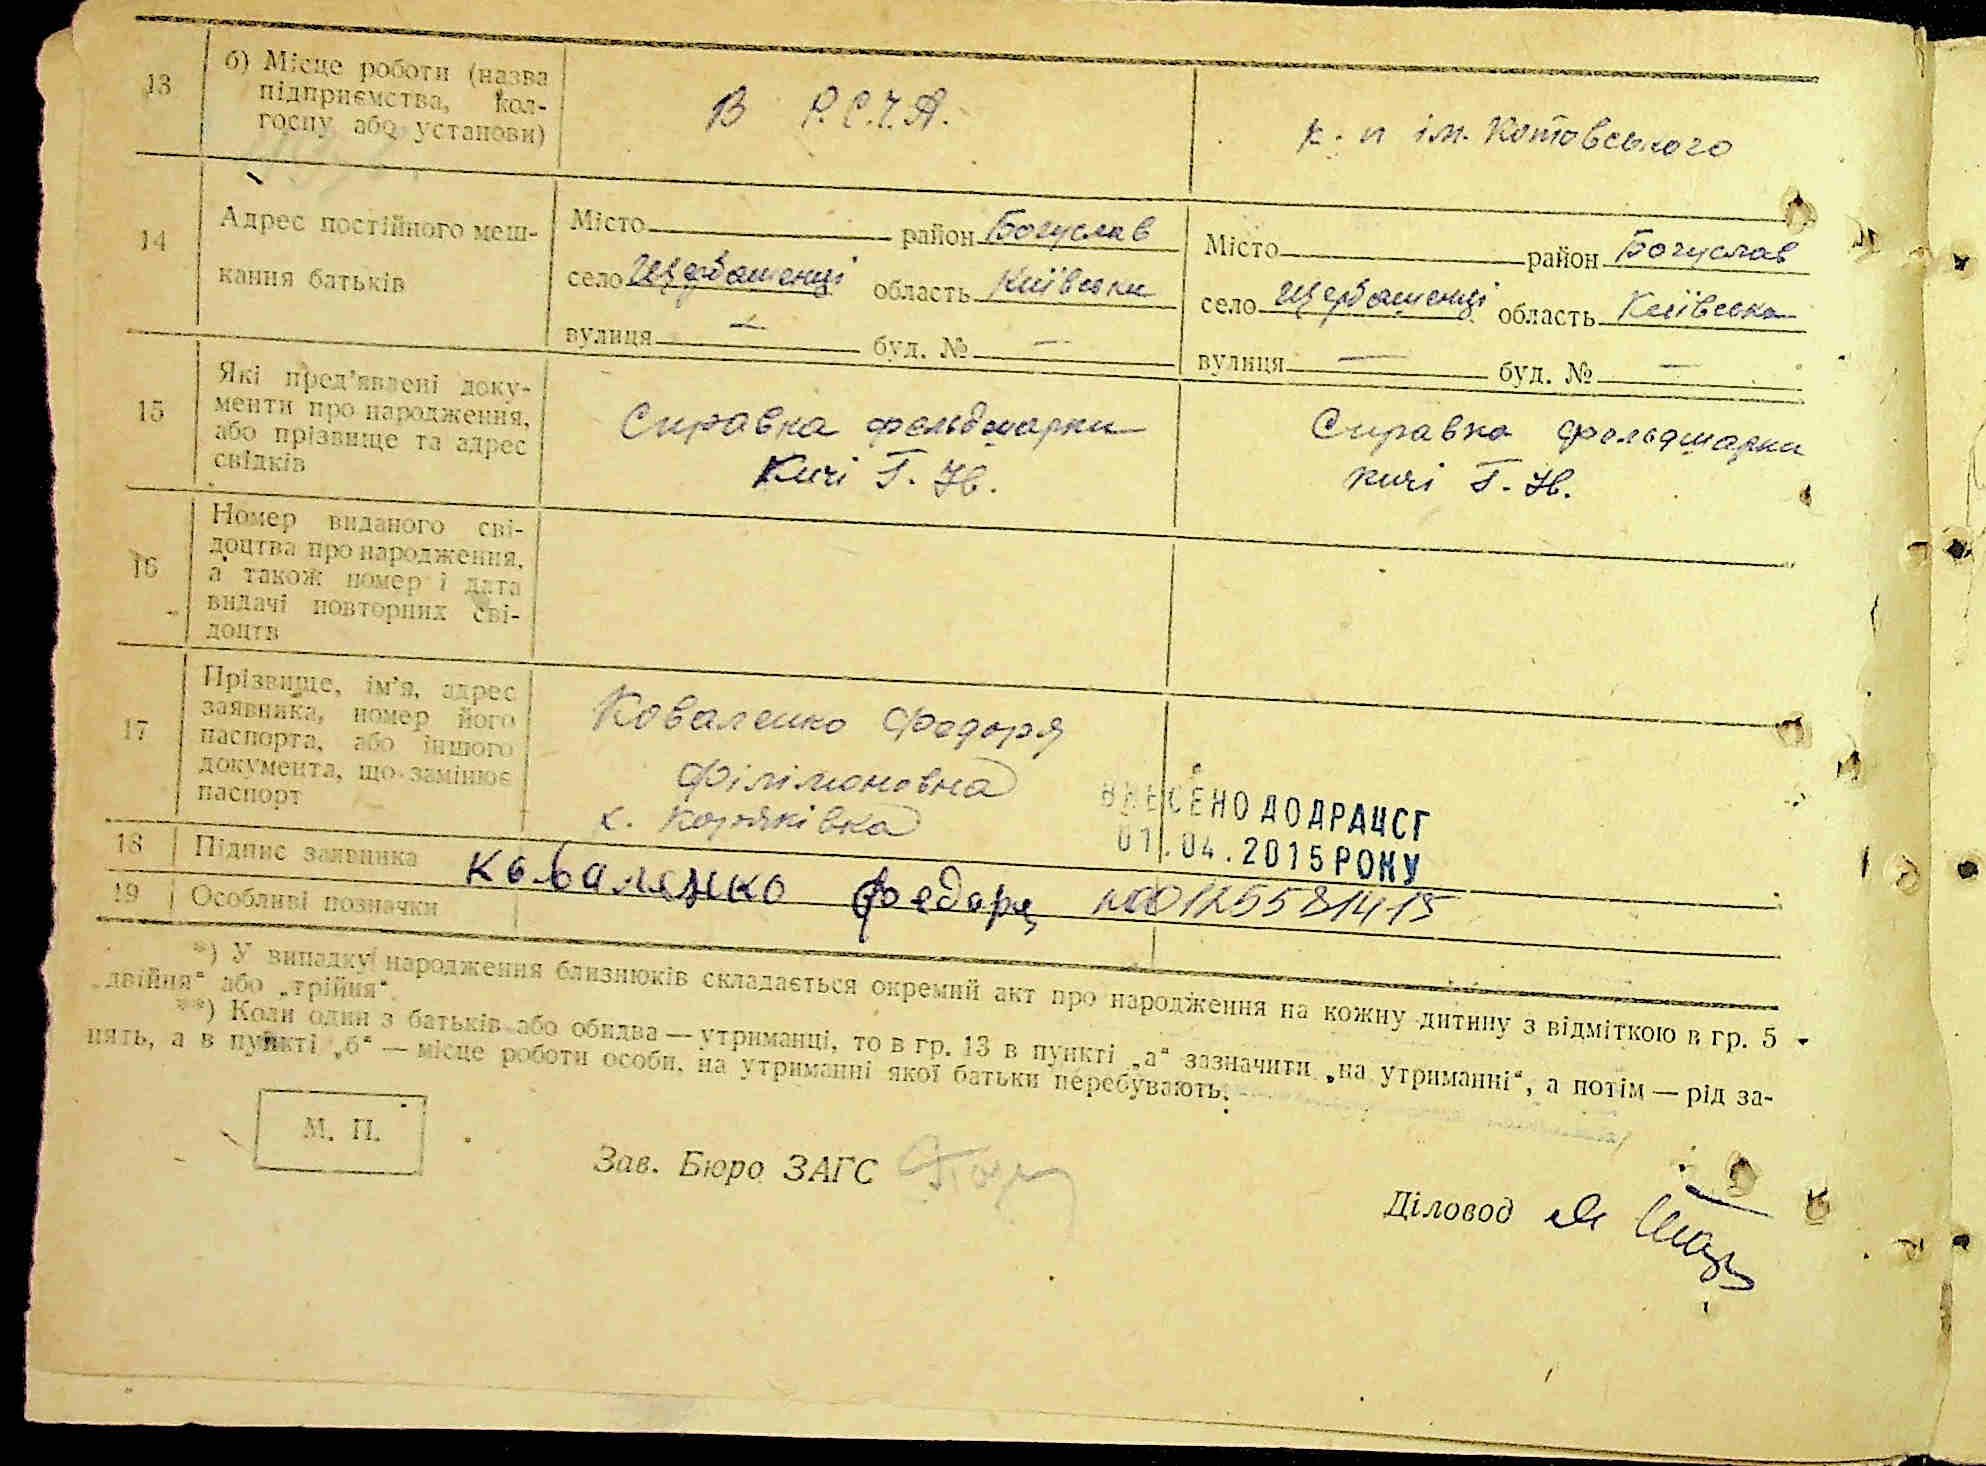 13
б) Місце роботи (назва
підприємства, кол-
госпу або установи)
В Р.С.Ч.А.
к. п ім. Котовського
14
Адрес постійного меш-
кання батьків
Місто район Богуслав
село Щербашенці область Київська
вулиця — буд. № —
Місто район Богуслав
село Щербашенці область Київська
вулиця — буд. № —
15
Які пред'явлені доку-
менти про народження,
або прізвище та адрес
свідків
Справка фельдшарки
Кичі Г. Ів.
Справка фельдшарки
Кичі Г. Ів.
16
Номер виданого сві-
доцтва про народження,
а також номер і дата
видачі повторних сві-
доцтв
17
Прізвище, ім'я, адрес
заявника, номер його
паспорта, або іншого
документа, що замінює
паспорт
Коваленко Федоря
Філімоновна
х. Коряківка
ВНЕСЕНО ДО ДРАЦСГ
01.04.2015 РОКУ
18
Підпис заявника
Коваленко Федоря
19
Особливі позначки
№00125581415
*) У випадку народження близнюків складається окремий акт про народження на кожну дитину з відміткою в гр. 5
„двійня“ або „трійня“.
**) Коли один з батьків або обидва — утриманці, то в гр. 13 в пункті „а“ зазначити „на утриманні“, а потім — рід за-
нять, а в пункті „б“ — місце роботи особи, на утриманні якої батьки перебувають.
М. П.
Зав. Бюро ЗАГС
Діловод